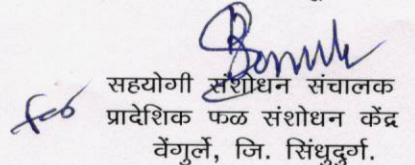 सहयोगी संशोधन संचालक
प्रादेशिक फळ संशोधन केंद्र
वेंगुर्ले, जि. सिंधुदुर्ग.